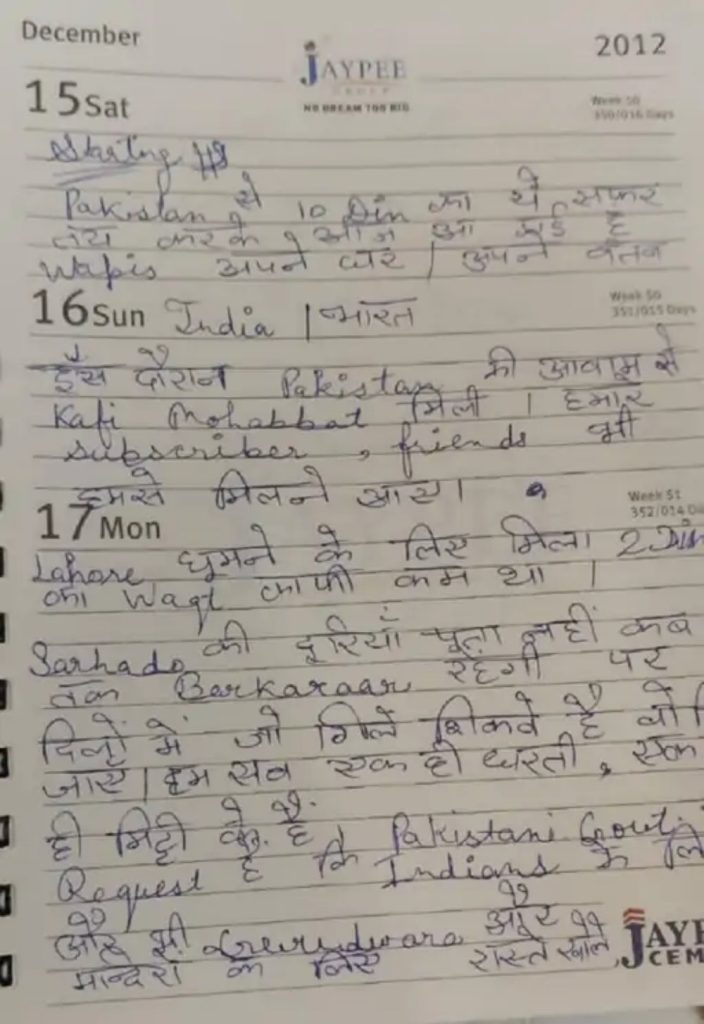 December
2012
JAYPEE
GROUP
NO DREAM TOO BIG
15 Sat
Week 50
350/016 Days
Starting
Pakistan से 10 Din का ये सफर
तय करके आज आ गई है
Wapis अपने घर | अपने वतन
16 Sun
Week 50
351/015 Days
India | भारत
इस दौरान Pakistan की आवाम से
Kafi Mohabbat मिली | हमारे
subscriber, friends भी
हमसे मिलने आए।
17 Mon
Week 51
352/014
Lahore घूमने के लिए मिला 2 Din
का Waqt काफी कम था |
Sarhado की दूरियाँ पता नहीं कब
तक Barkaraar रहेगी पर
दिलों में जो गिले शिकवे है वो
जाए | हम सब एक ही धरती, एक
ही मिट्टी के है। Pakistani Govt.
Request है कि Indians के
और भी Gurudwara और
मन्दिरों के लिए रास्ते खोले
JAYP
CEM